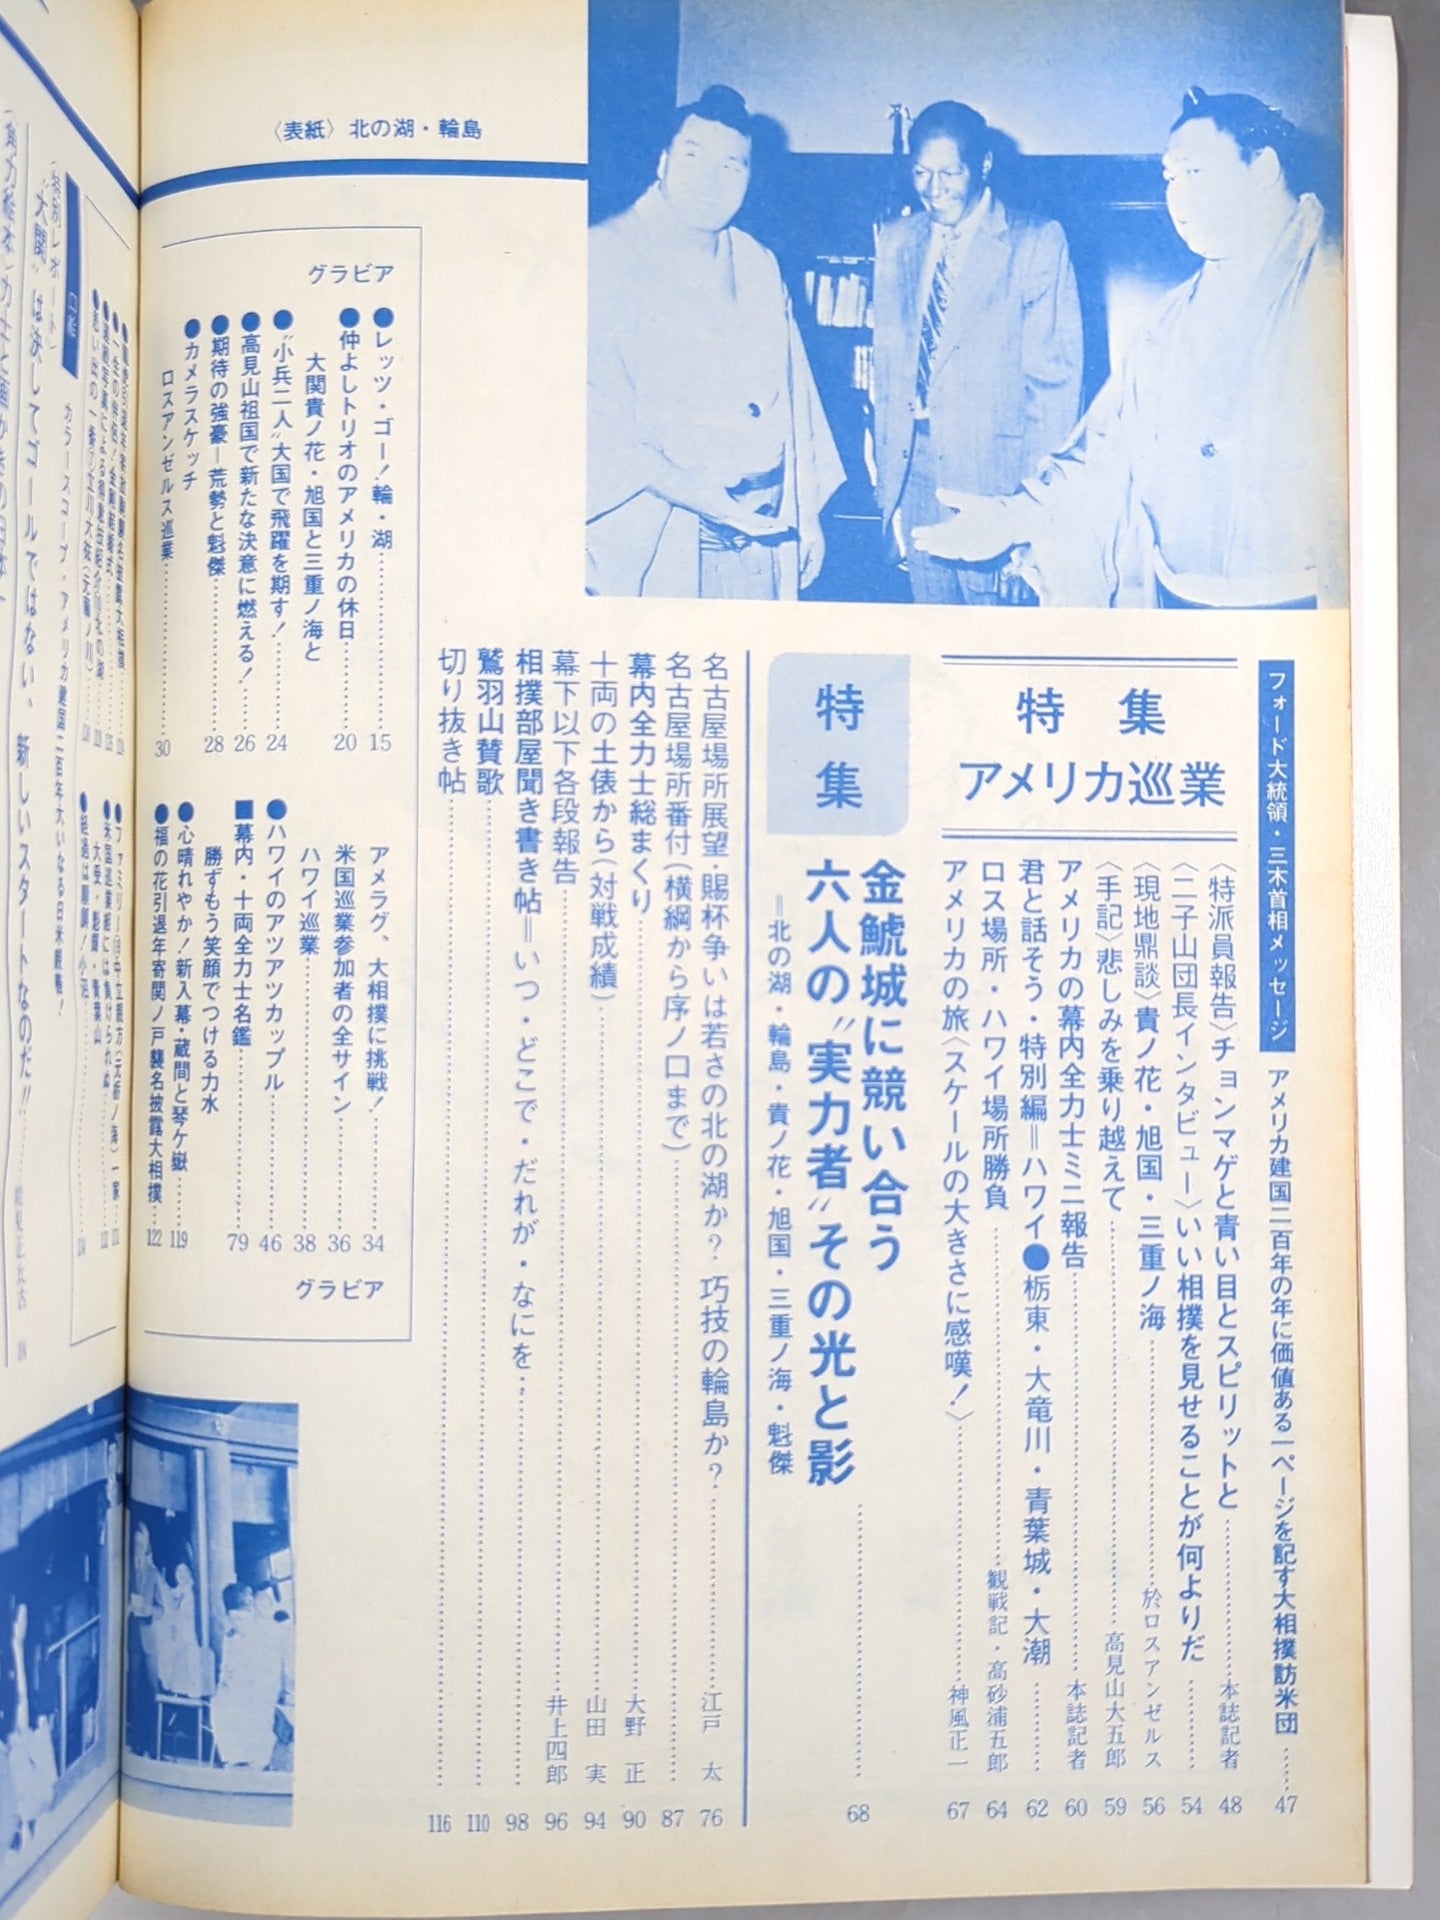 〈表紙〉北の湖・輪島
フォード大統領・三木首相メッセージ
アメリカ建国二百年の年に価値ある一ページを記す大相撲訪米団……47
特集
アメリカ巡業
〈特派員報告〉チョンマゲと青い目とスピリットと……本誌記者 48
〈二子山団長インタビュー〉いい相撲を見せることが何よりだ……54
〈現地鼎談〉貴ノ花・旭国・三重ノ海……於ロスアンゼルス 56
〈手記〉悲しみを乗り越えて……高見山大五郎 59
アメリカの幕内全力士ミニ報告……本誌記者 60
君と話そう・特別編＝ハワイ●栃東・大竜川・青葉城・大潮……62
ロス場所・ハワイ場所勝負……観戦記・高砂浦五郎 64
アメリカの旅〈スケールの大きさに感嘆！〉……神風正一 67
特集
金鯱城に競い合う
六人の〝実力者〟その光と影……68
＝北の湖・輪島・貴ノ花・旭国・三重ノ海・魁傑
名古屋場所展望・賜杯争いは若さの北の湖か？ 巧技の輪島か？……江戸 太 76
名古屋場所番付（横綱から序ノ口まで）……87
幕内全力士総まくり……大野 正 90
十両の土俵から（対戦成績）……山田 実 94
幕下以下各段報告……井上四郎 96
相撲部屋聞き書き帖＝いつ・どこで・だれが・なにを……98
鷲羽山賛歌……110
切り抜き帖……116
グラビア
●レッツ・ゴー！輪・湖……15
●仲よしトリオのアメリカの休日……20
大関貴ノ花・旭国と三重ノ海と
●〝小兵二人〟大国で飛躍を期す！……24
●高見山祖国で新たな決意に燃える！……26
●期待の強豪＝荒勢と魁傑……28
●カメラスケッチ
ロスアンゼルス巡業……30
アメラグ、大相撲に挑戦！……34
米国巡業参加者の全サイン……36
ハワイ巡業……38
●ハワイのアツアツカップル……46
■幕内・十両全力士名鑑……79
勝ずもう笑顔でつける力水
●心晴れやか！新入幕・蔵間と琴ケ嶽……119
●福の花引退年寄関ノ戸襲名披露大相撲……122
グラビア
〈特別レポート〉
〝大関〟は決してゴールではない、新しいスタートなのだ！！
カラースコープ・アメリカ建国二百年大いなる日米親善！